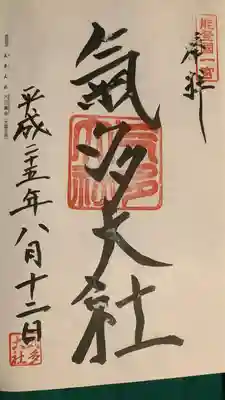 能登國一宮
奉拝
氣多大社
氣多大社
平成二十五年八月十二日
氣多大社